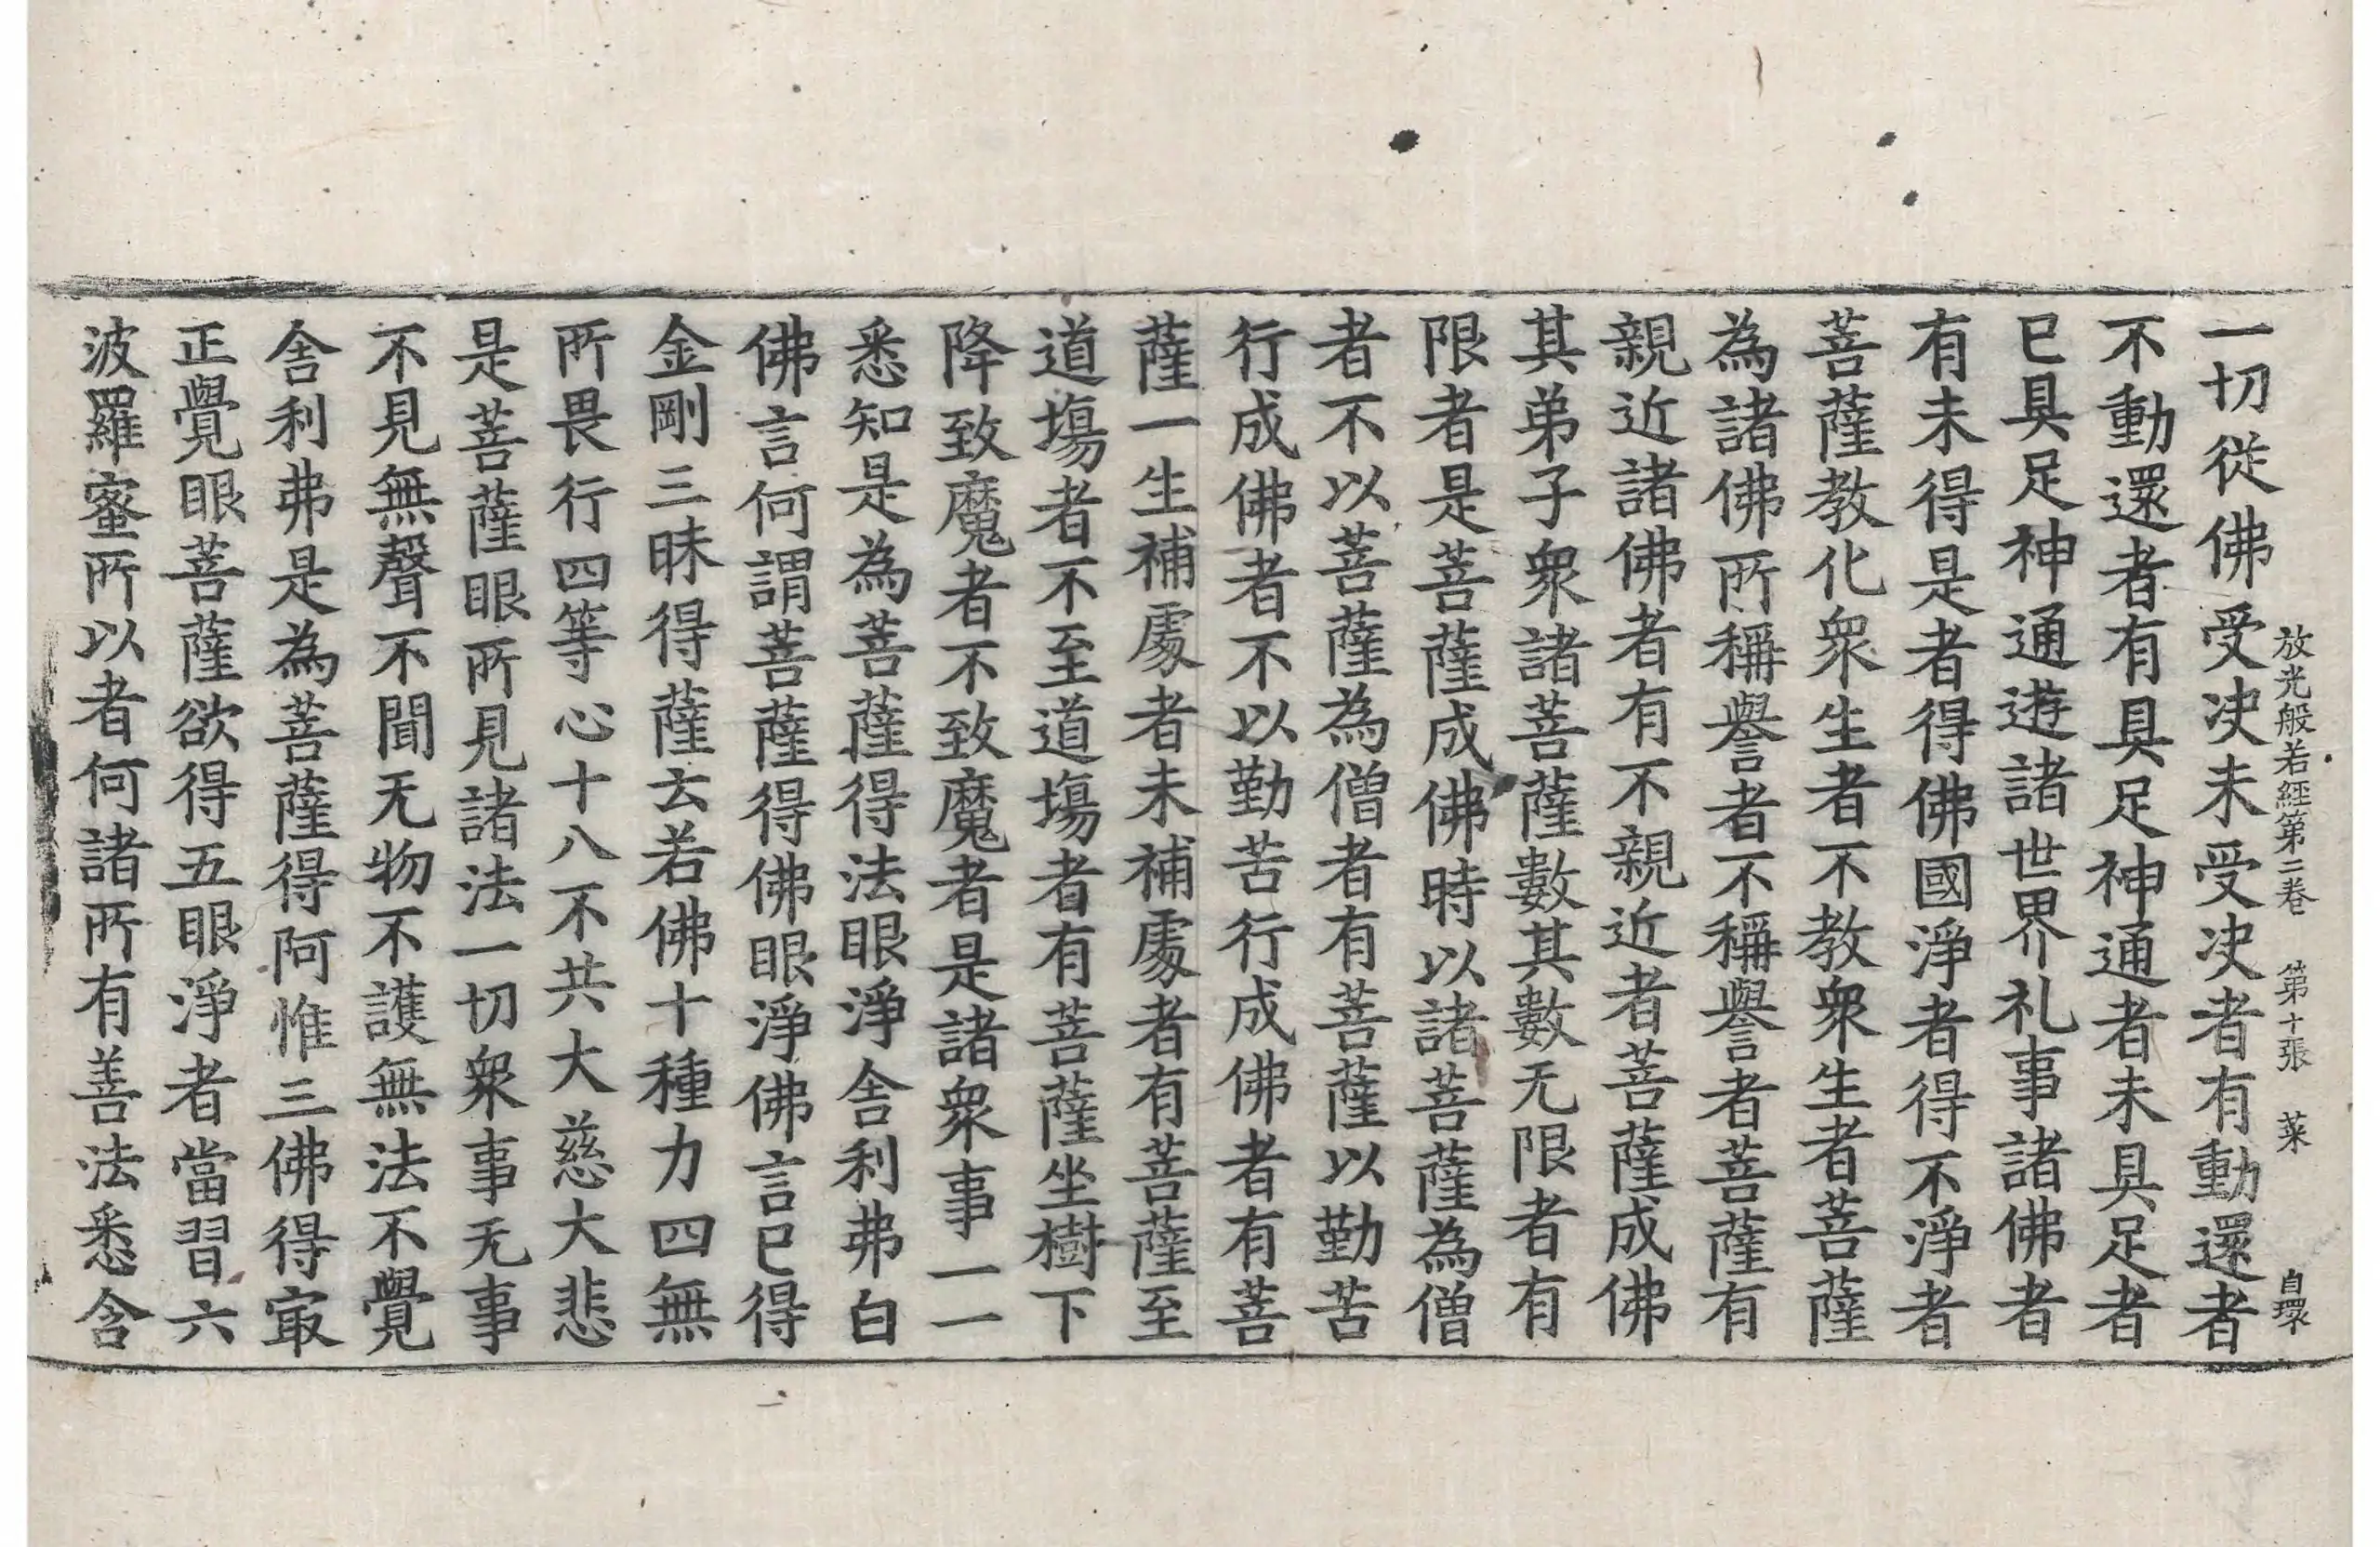 放光般若經第二卷　第十張　菜　自環
一切從佛受决未受决者有動還者
不動還者有具足神通者未具足者
已具足神通遊諸世界礼事諸佛者
有未得是者得佛國淨者得不淨者
菩薩教化衆生者不教衆生者菩薩
為諸佛所稱譽者不稱譽者菩薩有
親近諸佛者有不親近者菩薩成佛
其弟子衆諸菩薩數其數无限者有
限者是菩薩成佛時以諸菩薩為僧
者不以菩薩為僧者有菩薩以勤苦
行成佛者不以勤苦行成佛者有菩
薩一生補處者未補處者有菩薩至
道場者不至道場者有菩薩坐樹下
降致魔者不致魔者是諸衆事一一
悉知是為菩薩得法眼淨舍利弗白
佛言何謂菩薩得佛眼淨佛言已得
金剛三昧得薩云若佛十種力四無
所畏行四等心十八不共大慈大悲
是菩薩眼所見諸法一切衆事无事
不見無聲不聞无物不護無法不覺
舍利弗是為菩薩得阿惟三佛得㝡
正覺眼菩薩欲得五眼淨者當習六
波羅蜜所以者何諸所有善法悉含